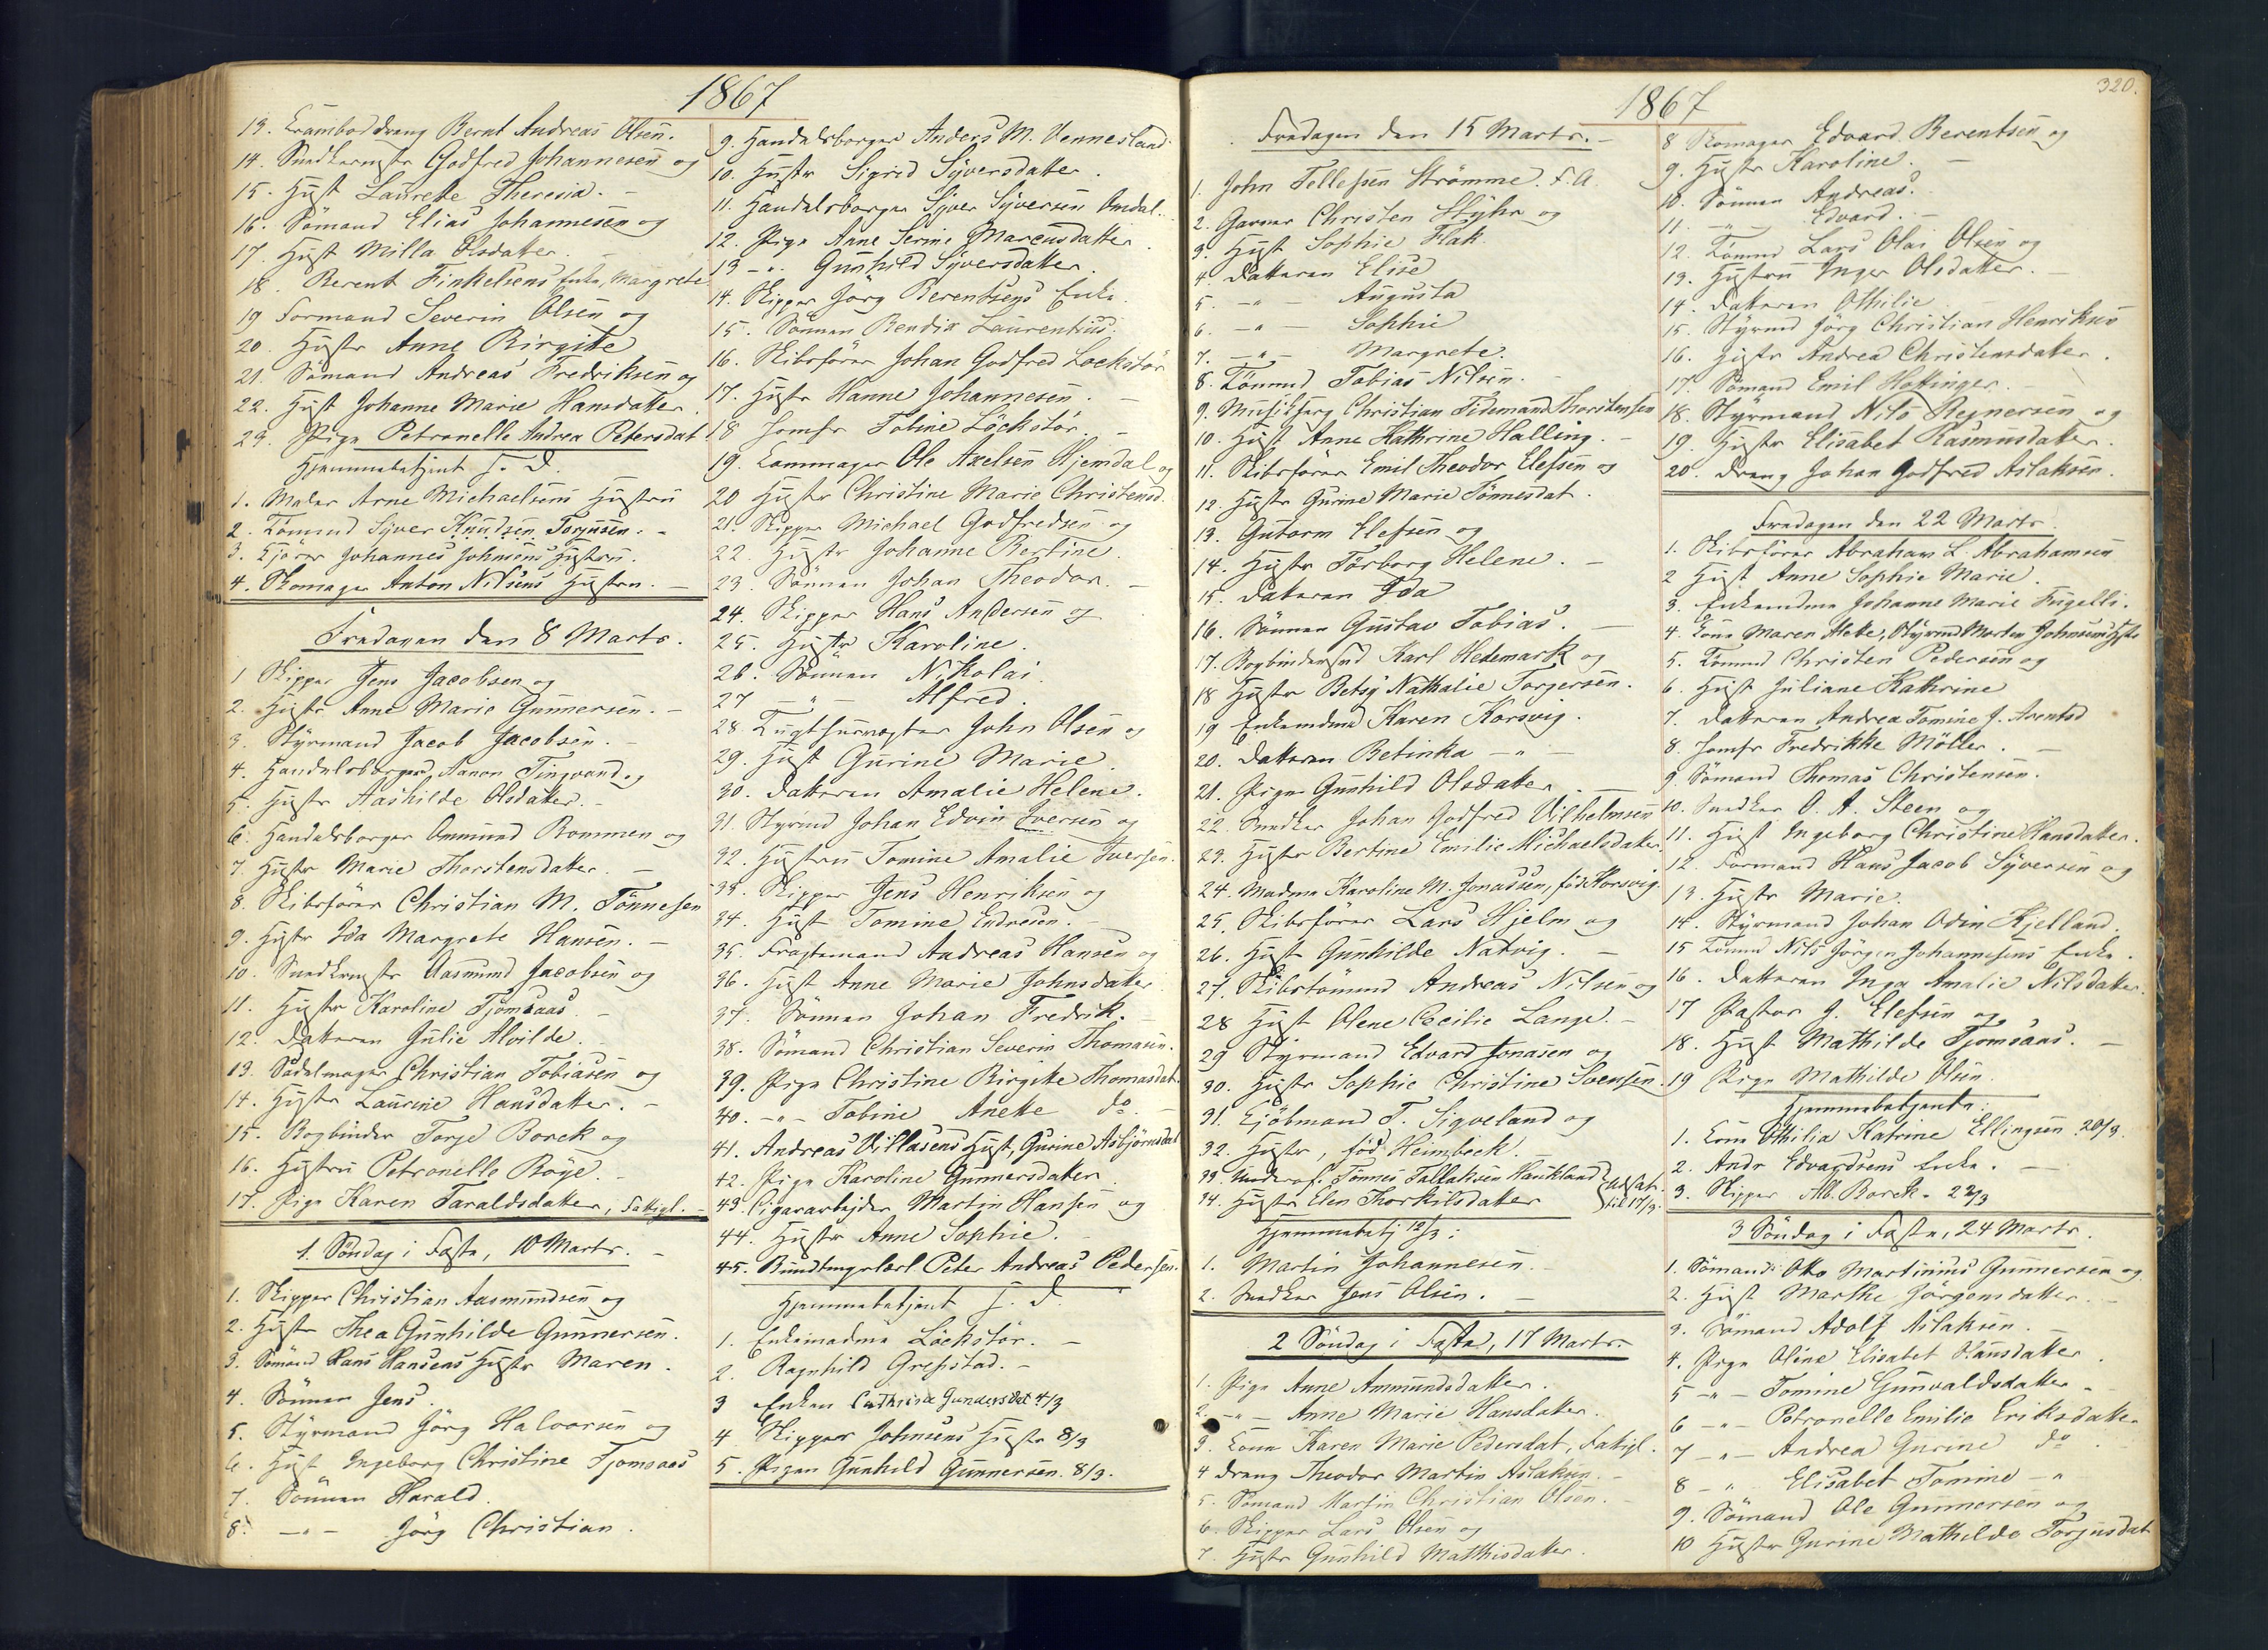 1867
13. Krambod dreng Bernt Andreas Olsen.
14. Snedkermstr Godfred Johannesen og
15. Hust Laurette Theresia. -
16. Sömand Elias Johannesen og
17. Hust Milla Olsdatter. -
18. Berent Finkelsens Enke, Margrete
19 Formand Severin Olsen og
20. Hustr Anne Birgitte
21. Sömand Andreas Fredriksen og
22. Hust Johanne Marie Hansdatter.
23. Pige Petronelle Andrea Petersdat
Hjemmebetjent f. D.
1. Maler Arne Michaelsens Hustru
2. Tömmd Syver Knudsen Torjusen. -
3. Kjörer Johannes Johnsens Hustru.
4. Skomager Anton Nilsens Hustru. -
Fredagen den 8 Marts.
1 Skipper Jens Jacobsen og
2. Hustr Anne Marie Gunnersen. -
3. Styrmand Jacob Jacobsen. -
4. Handelsborger Aanon Tingvand og
5. Hustr Aashilde Olsdatter. -
6. Handelsborger Ommund Rommen og
7. Hustr Marie Thorstensdatter. -
8. Skibsförer Christian M. Tönnesen
9. Hustr Ida Margrete Hansen. -
10. Snedkermstr Aasmund Jacobsen og
11. Hustr Karoline Tjomsaas. -
12. Datteren Julie Alvilde.
13. Sadelmager Christian Tobiasen og
14. Hustr Laurine Hansdatter. -
15. Bogbinder Torje Borck og
16. Hustru Petronelle Röye. -
17. Pige Karen Taraldsdatter, Fattigl. -
1. Söndag i Faste, 10 Marts. -
1. Skipper Christian Aasmundsen og
2. Hustr Thea Gunhilde Gunnersen.
3. Sömand Hans Hansens Hustr Maren.
4. Sönnen Jens.
5. Styrmand Jörg Halvorsen og
6. Hust Ingeborg Christine Tjomsaas
7. Sönnen Harald.
8. -"- Jörg Christian.
9. Handelsborger Anders M. Vennesland.
10. Hustr Sigrid Syversdatter.
11. Handelsborger Syver Syversen Omdal.
12. Pige Anne Serine Marcusdatter.
13 -"- Gunhild Syversdatter.
14. Skipper Jörg Berentsens Enke.
15. Sönnen Bendix Laurentius.
16. Skibsförer Johan Godfred Lockstör
17. Hustr Hanne Johannesen. -
18 Jomfr Toline Löckstör. -
19. Lommager Ole Axelsen Hjemdal og
20 Hustr Christine Marie Christensd.
21. Skipper Michael Godfredsen og
22. Hustr Johanne Bertine.
23. Sönnen Johan Theodor. -
24. Skipper Hans Andersen og
25. Hustr Karoline.
26. Sönnen Nikolai.
27 -"- Alfred.
28. Tugthusvogter John Olsen og
29. Hust Gurine Marie.
30. Datteren Amalie Helene.
31. Styrmd Johan Edvin Iversen og
32. Hustru Tomine Amalie Iversen.
33. Skipper Jens Henriksen og
34. Hust Tomine Endresen. -
35. Fragtemand Andreas Hansen og
36. Hust Anne Marie Johnsdatter
37. Sönnen Johan Fredrik. -
38. Sömand Christian Severin Thomasen.
39. Pige Christine Birgitte Thomasdat
40. -"- Tobine Anette do. -
41. Andreas Villasens Hust, Gurine Asbjörnsdat
42. Pige Karoline Gunnersdatter
43. Cigararbejder Martin Hansen og
44. Hustr Anne Sophie. -
45. Bundtmgrlærl Peter Andreas Pedersen.
Hjemmebetjent f. D.
1. Enkemadme Löckstör. -
2. Ragnhild Grefstad. -
3 Enken Cathrine Gundersdat 4/3
4 Skipper Johnsens Hustr 8/3
5. Pigen Gunhild Gunnersen. 8/3.
320.
1867
Fredagen den 15 Marts. -
1. John Tellefsen Strömme. F. A.
2. Garver Christen Styhr og
3. Hust Sophie Flak.
4. Datteren Elise
5. -"- Augusta
6. -"- Sophie
7. -"- Margrete.
8. Tömmd Tobias Nilsen. -
9. Musiklærg Christian Tidemand Thorstensen
10. Hust Anne Kathrine Halling. -
11. Skibsförer Emil Theodor Elefsen og
12. Hustr Gurine Marie Tönnesdat.
13. Gutorm Elefsen og
14. Hustr Torborg Helene. -
15. Datteren Ida
16. Sönnen Gustav Tobias. -
17. Bogbindersvd Karl Hedemark og
18 Hustr Betsy Nathalie Torgersen.
19 Enkemdme Karen Korsvig.
20. Datteren Betinka -"-
21. Pige Gunhild Olsdatter. -
22. Snedker Johan Godfred Vilhelmsen
23. Hustr Bertine Emilie Michaelsdatter
24. Madme Karoline M. Jonassen, föd Korsvig.
25. Skibsförer Lars Hjelm og
26. Hust Gunhilde Natvig. -
27. Skibstömmd Andreas Nilsen og
28 Hust Olene Cecilie Lange. -
29 Styrmand Edvard Jonasen og
30. Hustr Sophie Christine Svensen
31. Kjöbmand T. Sigveland og
32. Hustr, föd Heimbeck.
33. Underof. Tönnes Tallaksen Haukland
34. Hustr Elen Thorkilsdatter
Udsat. til 17/3.
Hjemmebetj 12/3:
1. Martin Johannesen.
2. Snedker Jens Olsen. -
2 Söndag i Faste, 17 Marts. -
1. Pige Anne Ammundsdatter.
2. -"- Anne Marie Hansdatter.
3. Kone Karen Marie Pedersdat, Fattigl.
4 Dreng Theodor Martin Aslaksen. -
5. Sömand Martin Christian Olsen. -
6. Skipper Lars Olsen og
7. Hustr Gunhild Mathisdatter.
8 Skomager Edvard Berentsen og
9. Hustr Karoline. -
10. Sönnen Andreas.
11. -"- Edvard. -
12. Tömmd Lars Olai Olsen og
13. Hustru Inger Olsdatter. -
14. Datteren Othilie
15. Styrmd Jörg Christian Henriksen
16. Hustr Andrea Christensdatter.
17. Sömand Emil Hottinger. -
18. Styrmand Nils Reynersen og
19. Hustr Elisabet Rasmusdatter.
20. Dreng Johan Godfred Aslaksen.
Fredagen den 22 Marts.
1. Skibsförer Abraham L. Abrahamsen
2 Hust Anne Sophie Marie.
3. Enkemdme Johanne Marie Fugelli.
4. Kone Maren Mette, Styrmd Morten Johnsens Hstr
5. Tömmd Christen Pedersen og
6. Hust Juliane Kathrine
7. Datteren Andrea Tomine J. Arentsd
8. Jomfr Fredrikke Möller. -
9. Sömand Thomas Christensen.
10. Snedker O. A. Steen og
11. Hust Ingeborg Christine Hansdatter.
12. Formand Hans Jacob Syversen og
13. Hustr Marie.
14. Styrmand Johan Odin Kjelland.
15 Tömmd Nils Jörgen Johannesens Enke.
16. Datteren Inga Amalie Nilsdatter.
17 Pastor J. Elefsen og
18. Hust Mathilde Tjomsaas. -
19 Pige Mathilde Olsen.
Hjemmebetjente:
1. Kone Othilia Katrine Ellingsen. 20/3.
2. Andr Edvardsens Enke. -
3. Skipper Alb. Borck. 22/3
3 Söndag i Faste, 24 Marts.
1. Sömand Otto Martinius Gunnersen og
2. Hust Marthe Jörgensdatter. -
3. Sömand Adolf Aslaksen. -
4. Pige Oline Elisabet Hansdatter.
5 -"- Tomine Gunvaldsdatter. -
6 -"- Petronelle Emilie Eriksdatter
7 -"- Andrea Gurine do. -
8 -"- Elisabet Tomine -"-
9. Sömand Ole Gunnersen og
10 Hustr Gurine Mathilde Torjusdat